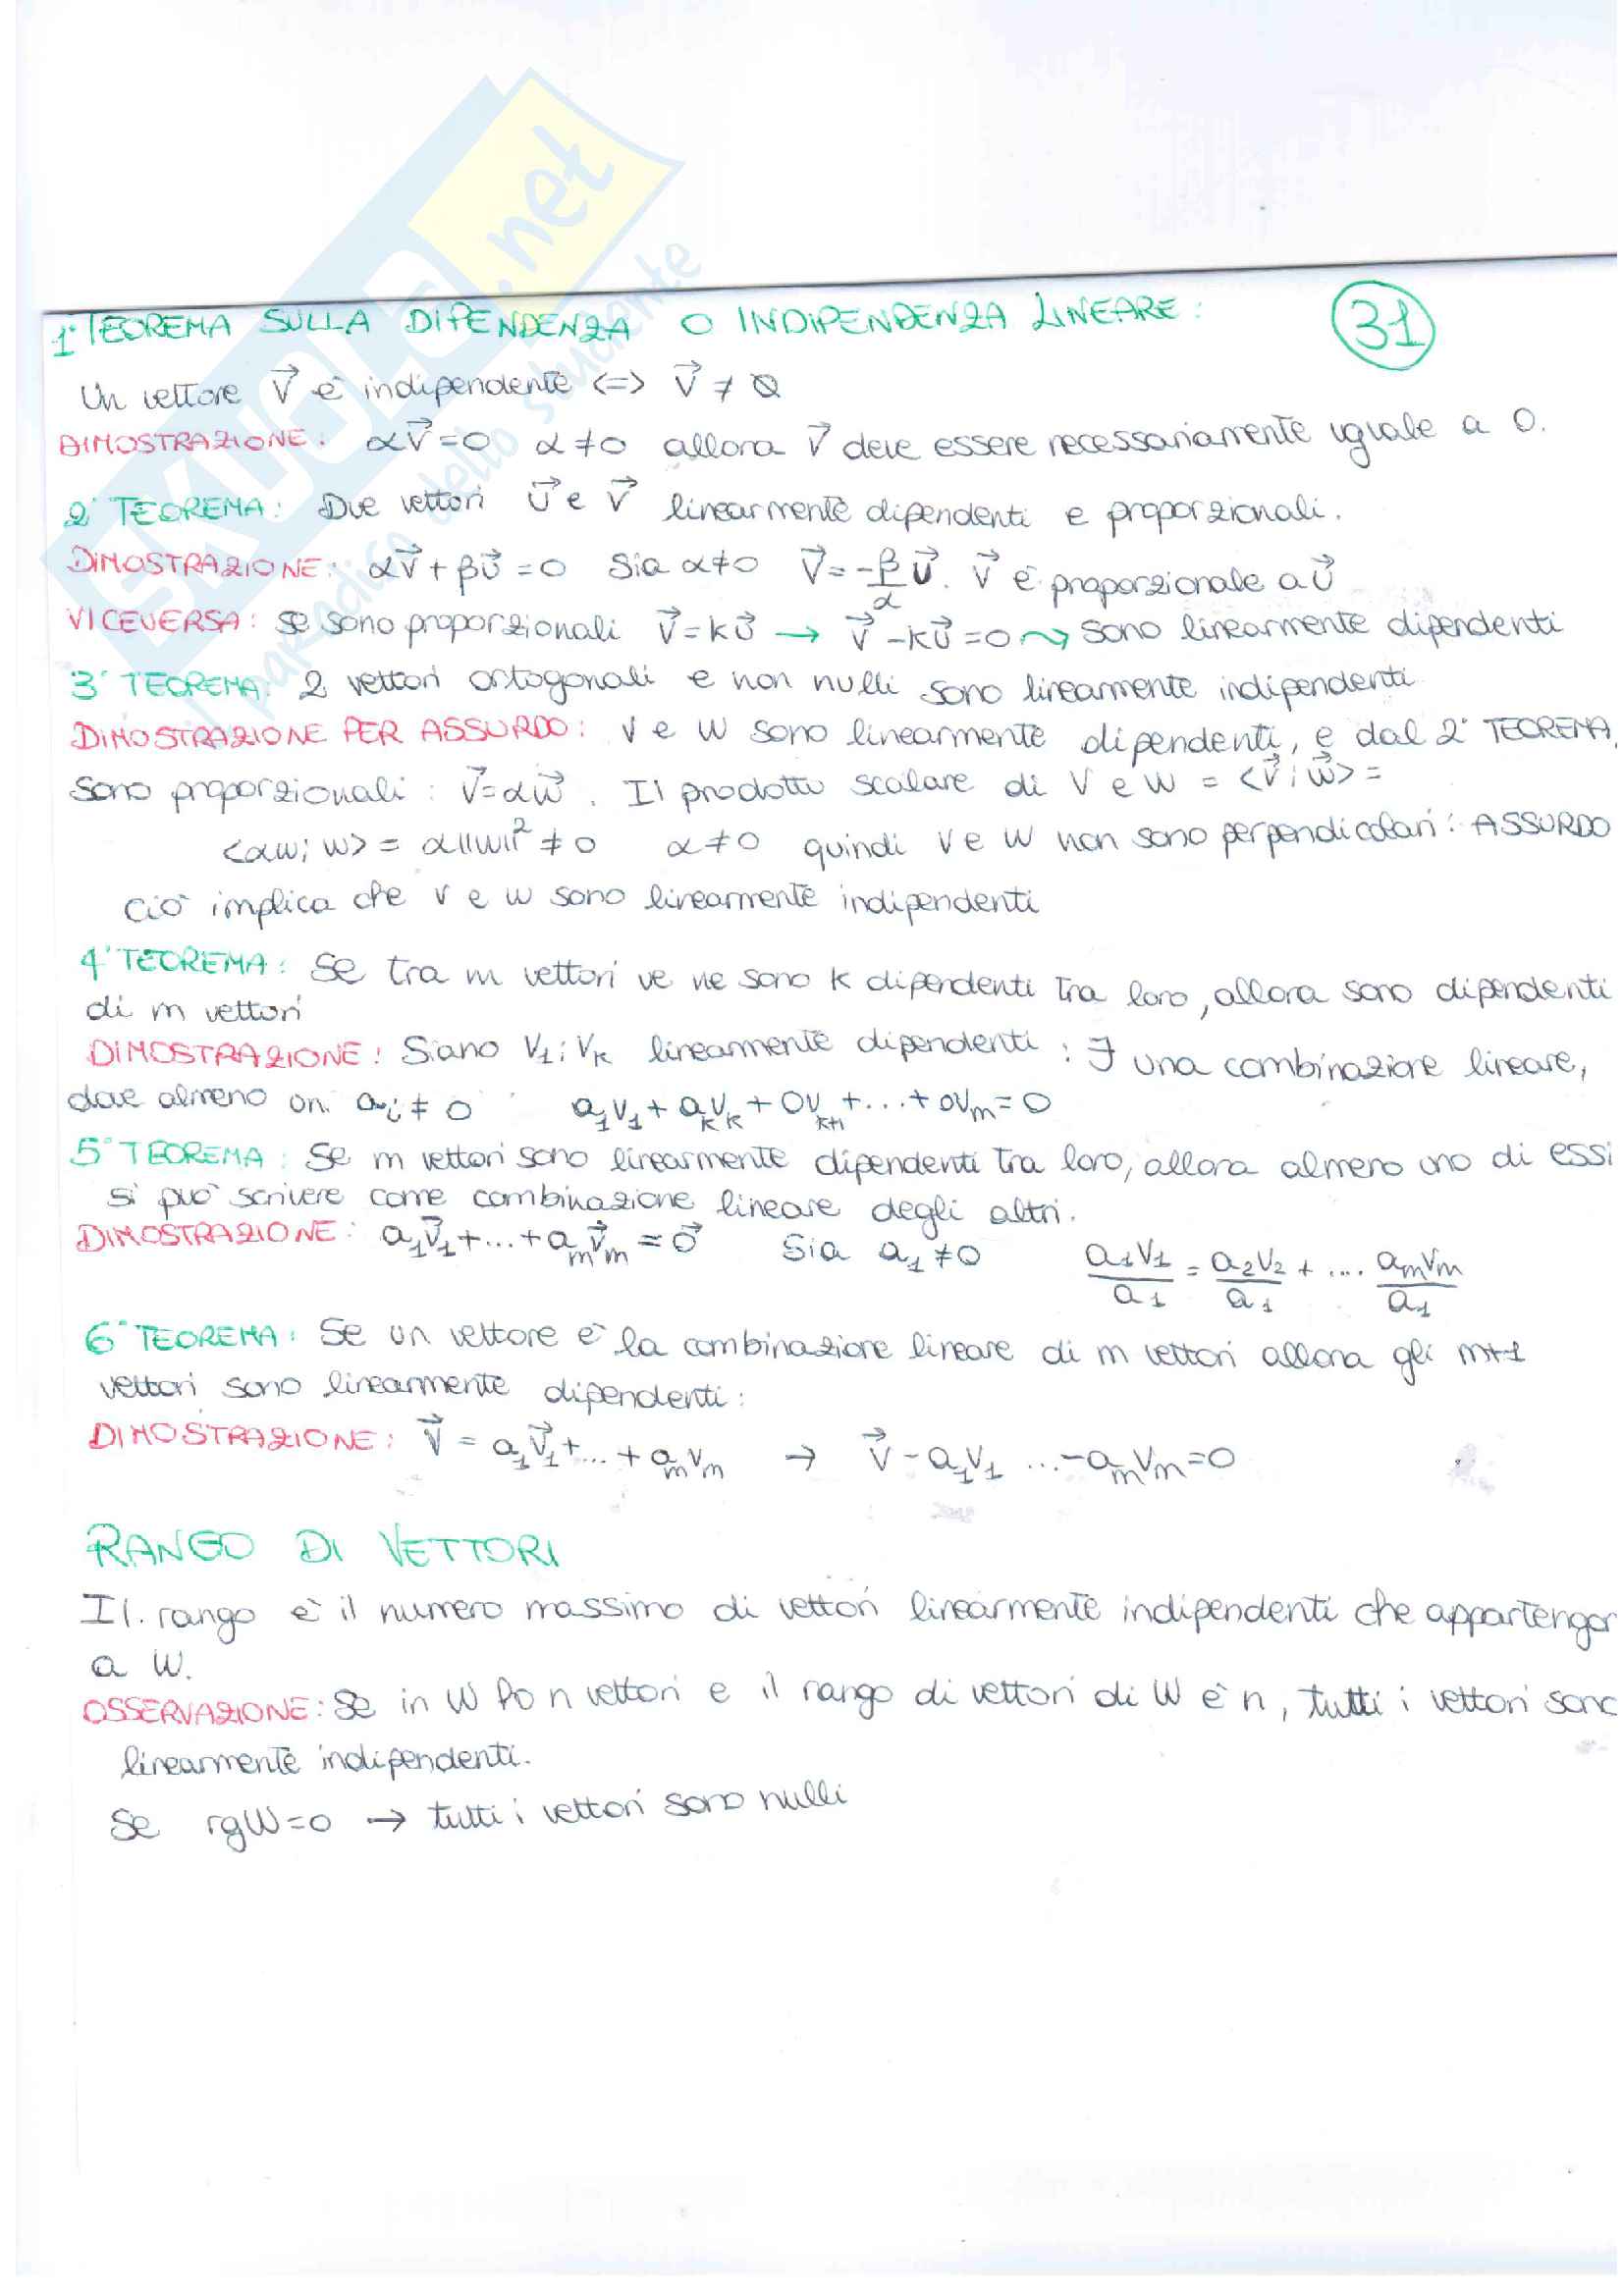 SKUOLA.net
il paradiso dello studente
31
1° TEOREMA SULLA DIPENDENZA O INDIPENDENZA LINEARE:
Un vettore v⃗ è indipendente <=> v⃗ ≠ 0
DIMOSTRAZIONE: αv⃗=0 α≠0 allora v⃗ deve essere necessariamente uguale a 0.
2° TEOREMA: Due vettori u⃗ e v⃗ linearmente dipendenti e proporzionali.
DIMOSTRAZIONE: αv⃗+βu⃗=0 Sia α≠0 v⃗=-β/α u⃗. v⃗ è proporzionale a u⃗
VICEVERSA: se sono proporzionali v⃗=ku⃗ → v⃗-ku⃗=0 ⇝ sono linearmente dipendenti
3° TEOREMA: 2 vettori ortogonali e non nulli sono linearmente indipendenti
DIMOSTRAZIONE PER ASSURDO: v e w sono linearmente dipendenti, e dal 2° TEOREMA
sono proporzionali: v⃗=αw⃗. Il prodotto scalare di v e w = <v⃗; w⃗> =
<αw; w> = α||w||² ≠ 0 α≠0 quindi v e w non sono perpendicolari: ASSURDO
Ciò implica che v e w sono linearmente indipendenti
4° TEOREMA: Se tra m vettori ve ne sono k dipendenti tra loro, allora sono dipendenti
di m vettori
DIMOSTRAZIONE: Siano v₁; vₖ linearmente dipendenti: ∃ una combinazione lineare,
dove almeno un aᵢ≠0 a₁v₁+aₖvₖ+0vₖ₊₁+...+0vₘ=0
5° TEOREMA: Se m vettori sono linearmente dipendenti tra loro, allora almeno uno di essi
si può scrivere come combinazione lineare degli altri.
DIMOSTRAZIONE: a₁v⃗₁+...+aₘv⃗ₘ=0⃗ Sia a₁≠0 a₁v₁/a₁ = a₂v₂/a₁ + .... aₘvₘ/a₁
6° TEOREMA: Se un vettore è la combinazione lineare di m vettori allora gli m+1
vettori sono linearmente dipendenti:
DIMOSTRAZIONE: v⃗ = a₁v⃗₁+...+aₘvₘ → v⃗-a₁v₁ ...-aₘvₘ=0
RANGO DI VETTORI
Il rango è il numero massimo di vettori linearmente indipendenti che appartengon
a W.
OSSERVAZIONE: Se in W ho n vettori e il rango di vettori di W è n, tutti i vettori sono
linearmente indipendenti.
Se rgW=0 → tutti i vettori sono nulli